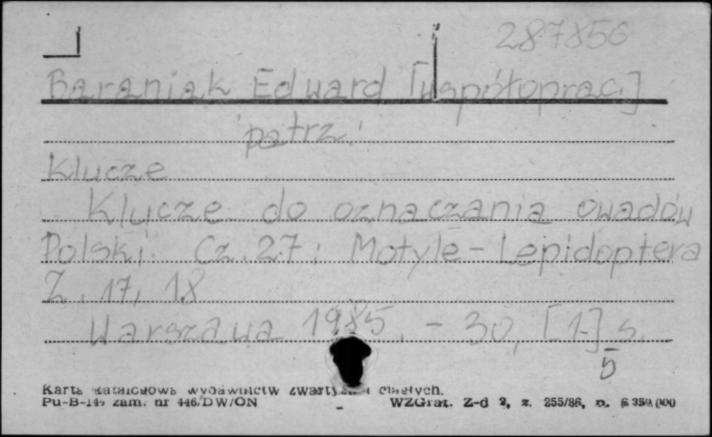 287856
Baraniak Edward [współoprac.]
patrz:
Klucze
Klucze do oznaczania owadów
Polski. Cz. 27: Motyle - Lepidoptera
Z. 17, 18
Warszawa 1985. - 30, [1] s.
5
Karta katalogowa wydawnictw zwartych i ciągłych.
Pu-B-145 zam. nr 446/DW/ON WZGraf. Z-d 2, z. 255/86, n.